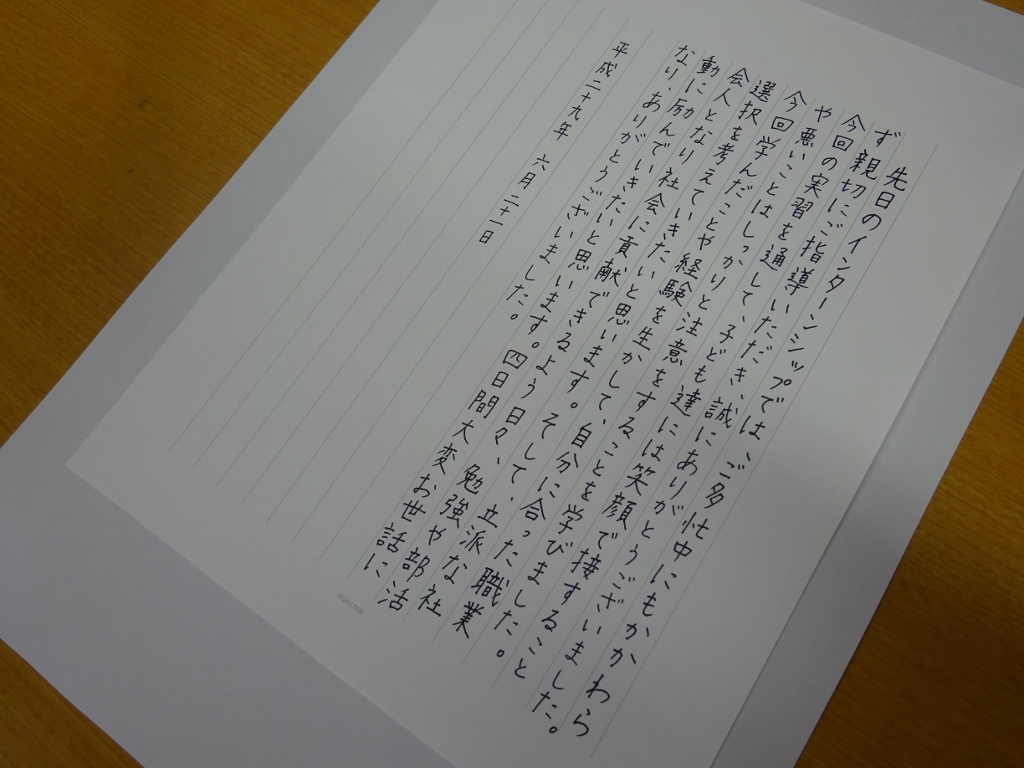 先日のインターンシップでは、ご多忙中にもかかわら
ず親切にご指導いただき、誠にありがとうございました。
今回の実習を通して、子ども達には笑顔で接すること
や悪いことはしっかりと注意をすることを学びました。
今回学んだことや経験を生かして、自分に合った職業
選択を考えていきたいと思います。そして、立派な社
会人となり社会に貢献できるよう日々、勉強や部活
動に励んでいきたいと思います。四日間大変お世話に
なり、ありがとうございました。
平成二十九年 六月二十一日
KOKUYO